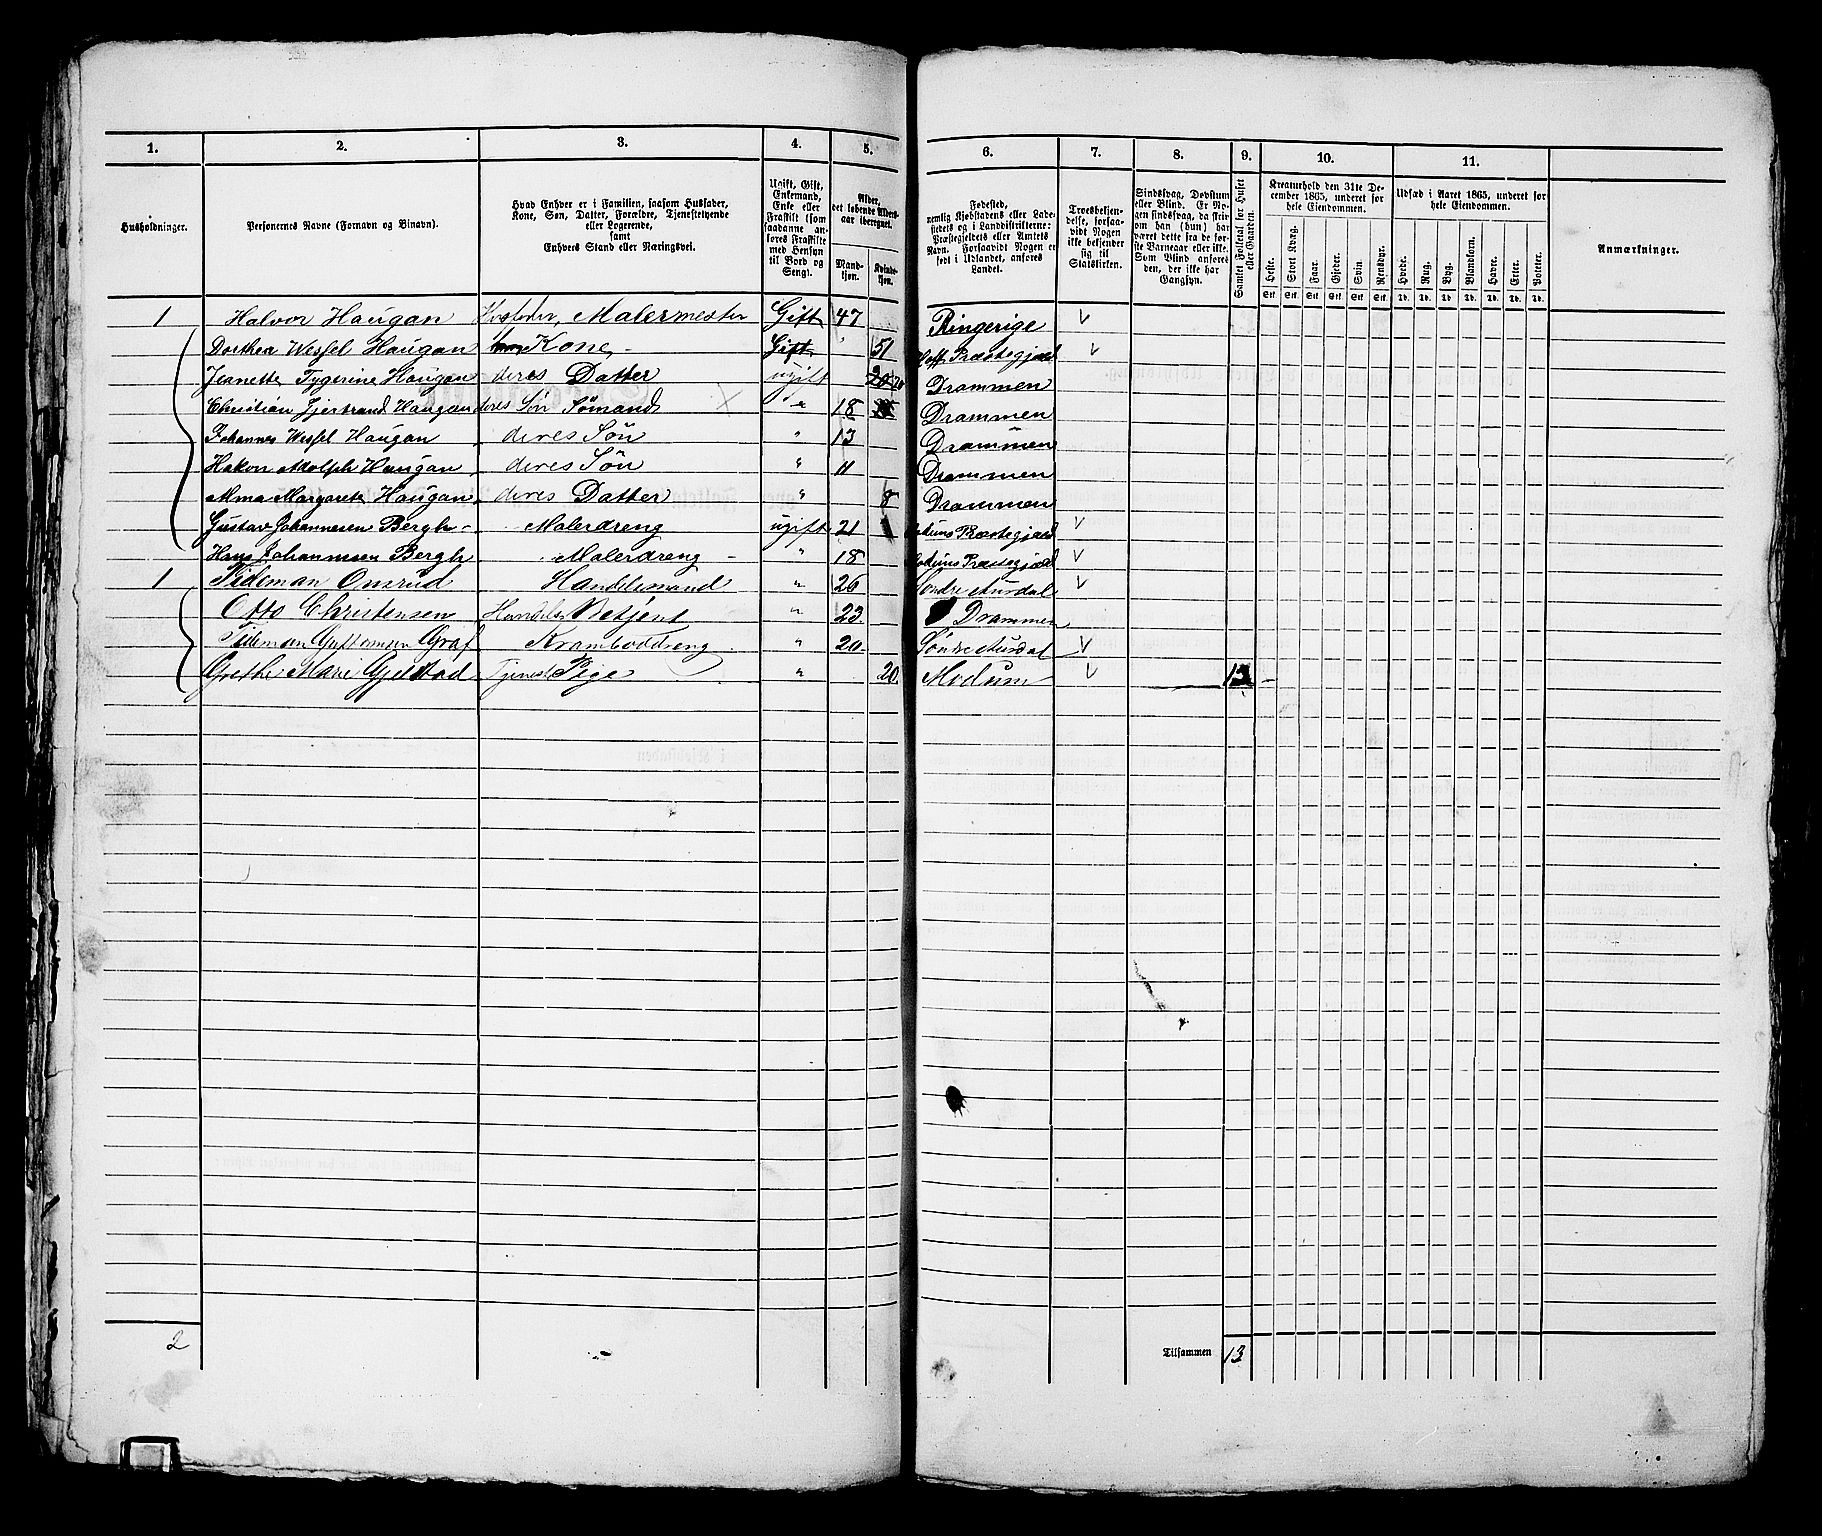 1. 2. 3. 4. 5. 6. 7. 8. 9. 10. 11.
Husholdninger.
Personernes Navne (Fornavn og Binavn).
Hvad Enhver er i Familien, saasom Husfader,
Kone, Søn, Datter, Forældre, Tjenestetyende
eller Logerende,
samt
Enhvers Stand eller Næringsvei.
Ugift, Gift,
Enkemand,
Enke eller
Fraskilt (som
saadanne an-
føres Fraskilte
med Hensyn
til Bord og
Seng).
Alder,
det løbende Alders-
aar iberegnet.
Mand-
kjøn.
Kvinde-
kjøn.
Fødested,
nemlig Kjøbstadens eller Lade-
stedets og i Landdistrikterne:
Præstegjeldets eller Amtets
Navn. Forsaavidt Nogen er
født i Udlandet, anføres
Landet.
Troesbekjen-
delse, forsaa-
vidt Nogen
ikke bekjender
sig til
Statskirken.
Sindssvag, Døvstum
eller Blind. Er No-
gen sindssvag, da skriv
om han (hun) har
været dette fra de før-
ste Barneaar eller ikke.
Som Blind anføres
den, der ikke har
Gangsyn.
Samlet Folketal for Huset
eller Gaarden.
Kreaturhold den 31te De-
cember 1865, underet før
hele Eiendommen.
Heste. Stort Kvæg. Faar. Gjeder. Svin. Rensdyr.
Stk. Stk. Stk. Stk. Stk. Stk.
Udsæd i Aaret 1865, underet for
hele Eiendommen.
Hvede. Rug. Byg. Blandkorn. Havre. Erter. Poteter.
Td. Td. Td. Td. Td. Td. Td.
Anmærkninger.
1 Halvor Haugan Husfader, Malermester Gift 47 Ringerige
Dorthea Wessel Haugan Kone Gift 51 Hoff Præstegjæld
Jeanette Tygerine Haugan deres Datter ugift 20 Drammen
Christian Haugan deres Søn Sømand do 18 Drammen
Johannes Wessel Haugan deres Søn " 13 Drammen
Hakon Adolph Haugan deres Søn " 11 Drammen
Alma Margarete Haugan deres Datter " 8 Drammen
Gustav Johannesen Bergh Malerdreng ugift 21 Modums Præstegjæld
Hans Johannesen Bergh Malerdreng " 18 Modums Præstegjæld
1 Tideman Omsrud Handelsmand " 26 Søndre Aurdal
Otto Christensen Handels Betjent " 23 Drammen
Tideman Graf Kramboddreng " 20 Søndre Aurdal
Grethe Marie Gjelstad Tjenest Pige " 20 Modum 13
2
Tilsammen 13